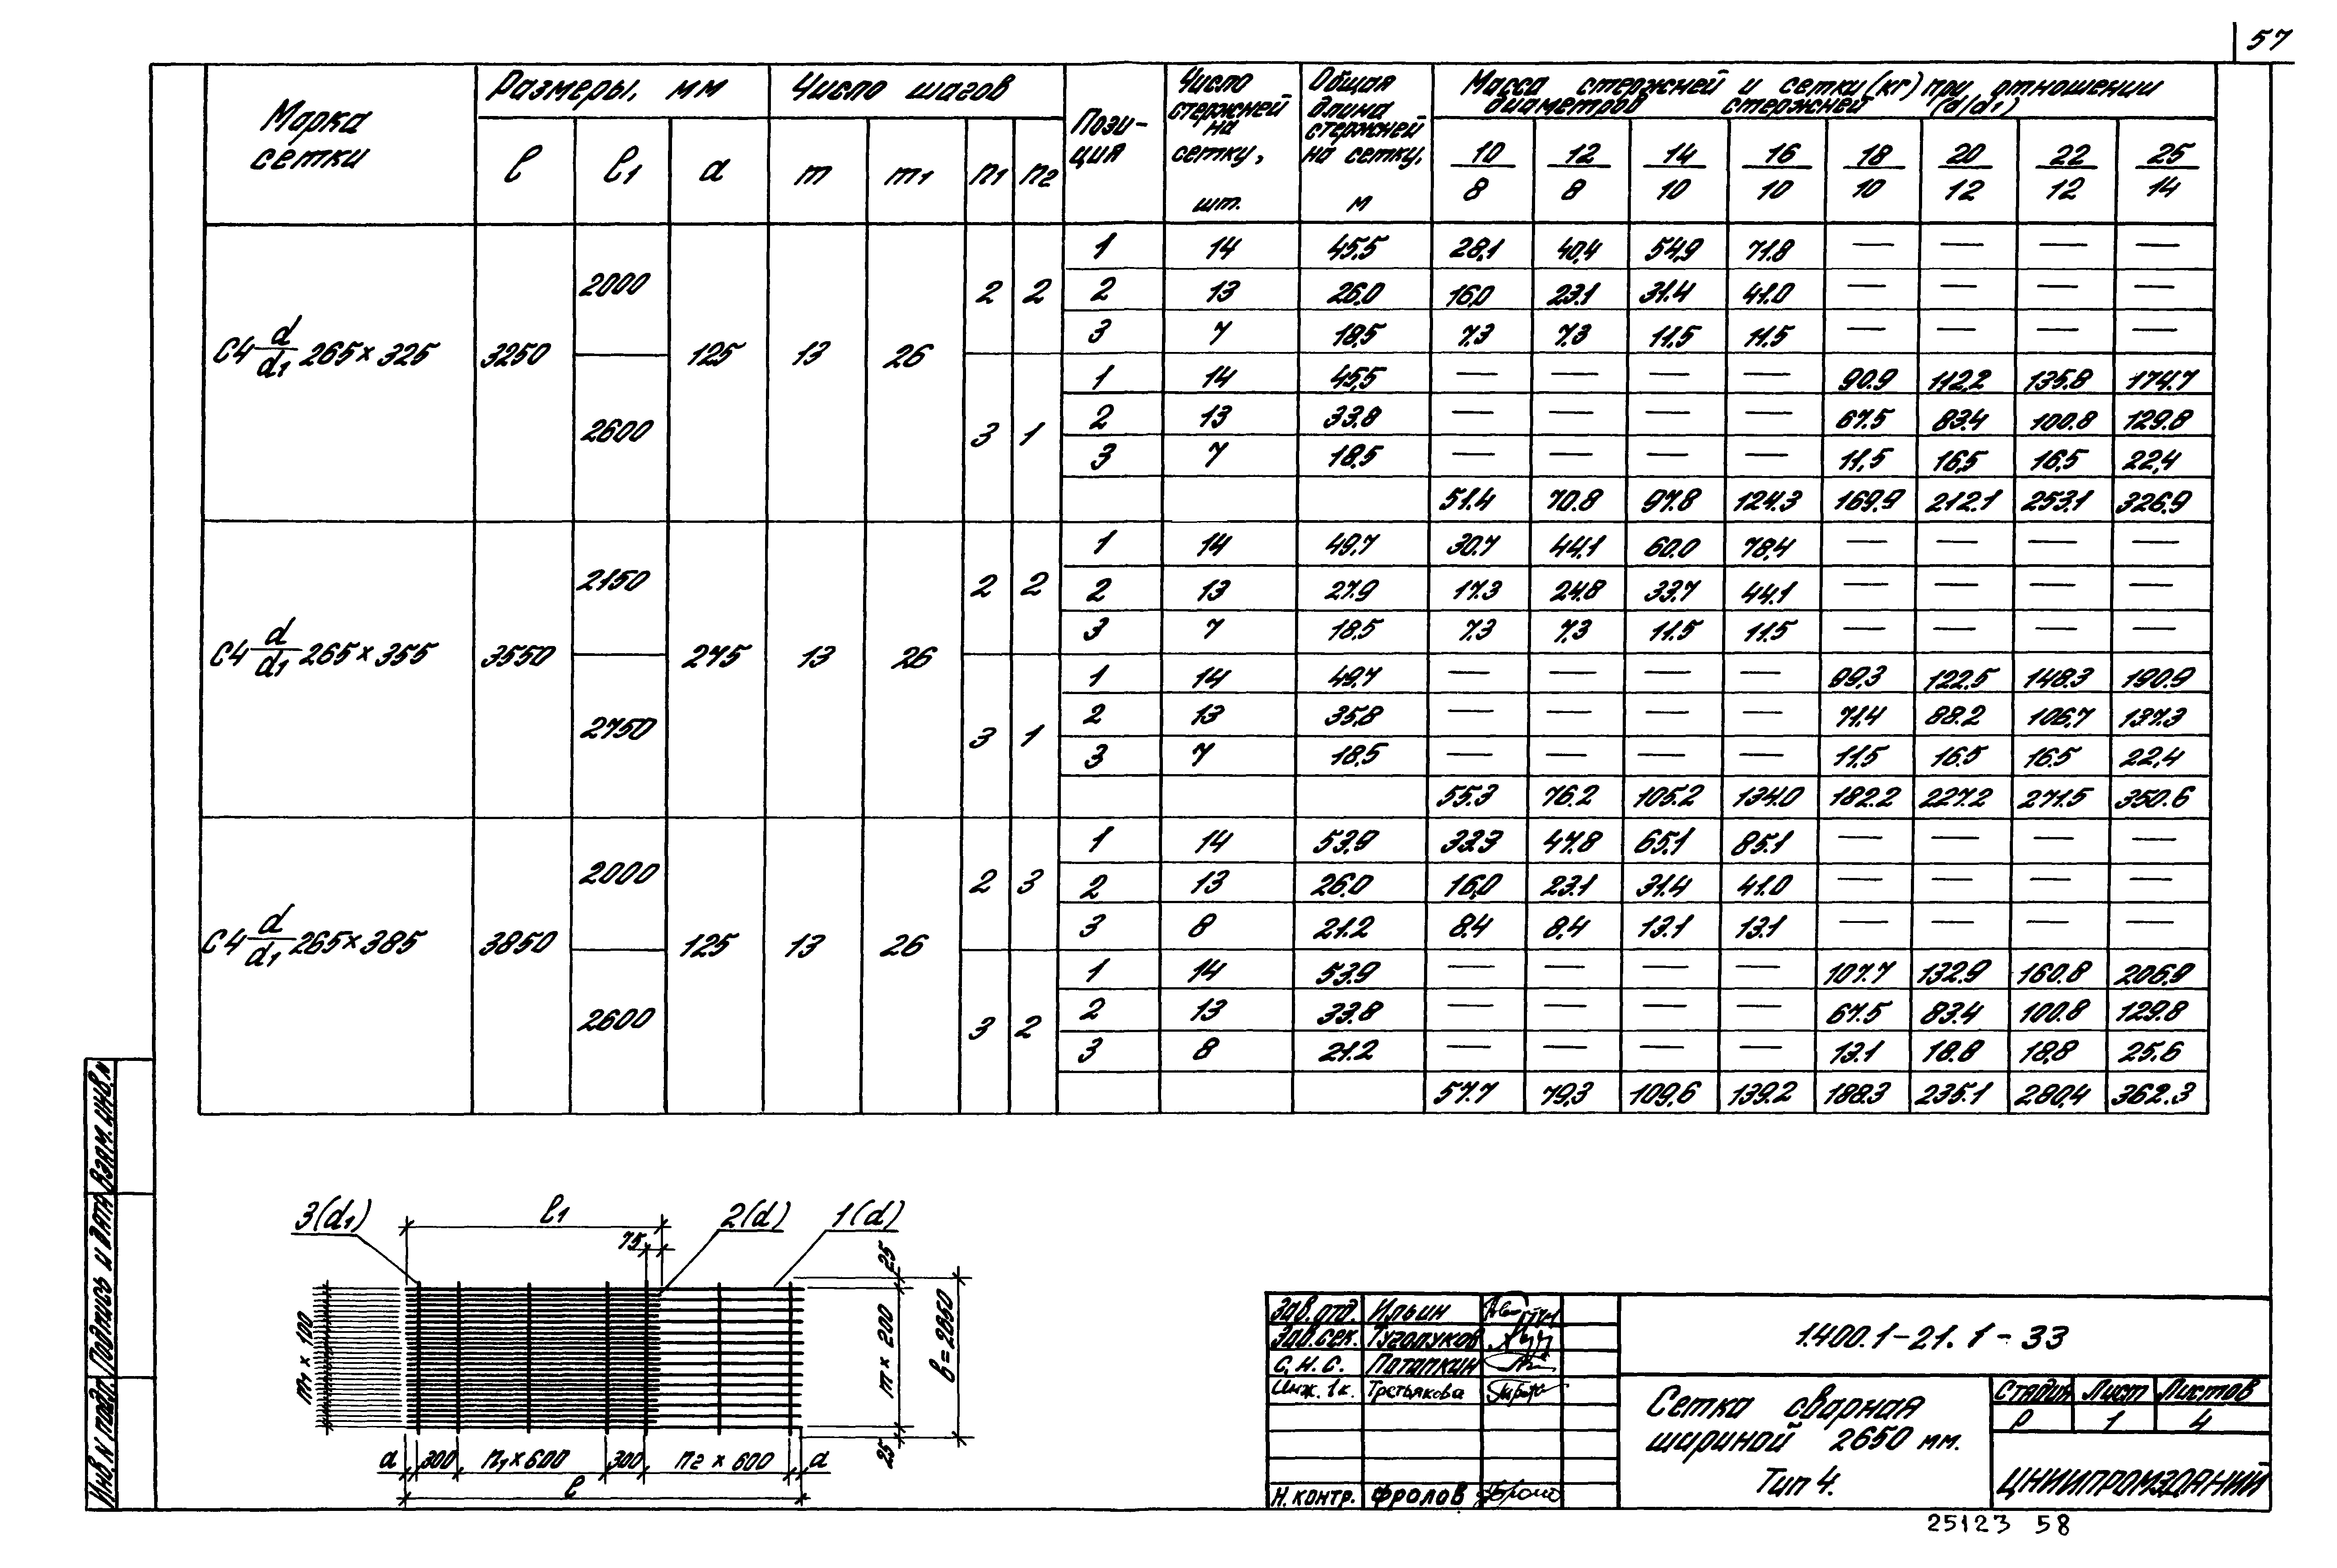 57
Марка сетки | Размеры, мм | Число шагов | Позиция | Число стержней на сетку, шт. | Общая длина стержней на сетку, м | Масса стержней и сетки (кг) при отношении диаметров стержней (d/d1)
l | l1 | a | m | m1 | n1 | n2 | 10/8 | 12/8 | 14/10 | 16/10 | 18/10 | 20/12 | 22/12 | 25/14
С4 d/d1 265×325 | 3250 | 125 | 13 | 26
2000 | 2 | 2
1 | 14 | 45,5 | 28,1 | 40,4 | 54,9 | 71.8 | — | — | — | —
2 | 13 | 26,0 | 16,0 | 23.1 | 31.4 | 41.0 | — | — | — | —
3 | 7 | 18,5 | 7.3 | 7.3 | 11,5 | 11.5 | — | — | — | —
2600 | 3 | 1
1 | 14 | 45,5 | — | — | — | — | 90.9 | 112,2 | 135.8 | 174.7
2 | 13 | 33.8 | — | — | — | — | 67.5 | 83.4 | 100.8 | 129.8
3 | 7 | 18,5 | — | — | — | — | 11,5 | 16,5 | 16,5 | 22,4
51.4 | 70.8 | 97.8 | 124.3 | 169.9 | 212.1 | 253.1 | 326.9
С4 d/d1 265×355 | 3550 | 275 | 13 | 26
2150 | 2 | 2
1 | 14 | 49,7 | 30.7 | 44,1 | 60.0 | 78,4 | — | — | — | —
2 | 13 | 27.9 | 17.3 | 24.8 | 33.7 | 44.1 | — | — | — | —
3 | 7 | 18.5 | 7.3 | 7,3 | 11.5 | 11.5 | — | — | — | —
2750 | 3 | 1
1 | 14 | 49,7 | — | — | — | — | 99,3 | 122.5 | 148.3 | 190.9
2 | 13 | 35,8 | — | — | — | — | 71.4 | 88.2 | 106,7 | 137.3
3 | 7 | 18,5 | — | — | — | — | 11,5 | 16.5 | 16.5 | 22,4
55.3 | 76.2 | 105.2 | 134.0 | 182.2 | 227.2 | 271.5 | 350.6
С4 d/d1 265×385 | 3850 | 125 | 13 | 26
2000 | 2 | 3
1 | 14 | 53,9 | 33.3 | 47.8 | 65.1 | 85.1 | — | — | — | —
2 | 13 | 26,0 | 16,0 | 23.1 | 31.4 | 41.0 | — | — | — | —
3 | 8 | 21.2 | 8.4 | 8,4 | 13.1 | 13.1 | — | — | — | —
2600 | 3 | 2
1 | 14 | 53.9 | — | — | — | — | 107.7 | 132.9 | 160.8 | 206.9
2 | 13 | 33.8 | — | — | — | — | 67.5 | 83.4 | 100.8 | 129.8
3 | 8 | 21.2 | — | — | — | — | 13.1 | 18.8 | 18,8 | 25.6
57.7 | 79,3 | 109,6 | 139.2 | 188.3 | 235.1 | 280,4 | 362.3
3(d1) l1 2(d) 1(d)
75
25
m1 × 100
m × 200
в = 2650
25
a 300 n1×600 300 n2 × 600 a
l
Взам. инв. N
Подпись и дата
Инв. N подл.
Зав. отд. Ильин
Зав. сек. Туголуков
С. Н. С. Потапкин
Инж. 1 к. Третьякова
Н. контр. Фролов
1.400.1-21. 1 - 33
Сетка сварная
шириной 2650 мм.
Тип 4.
Стадия Лист Листов
Р 1 4
ЦНИИПРОМЗДАНИЙ
25123 58